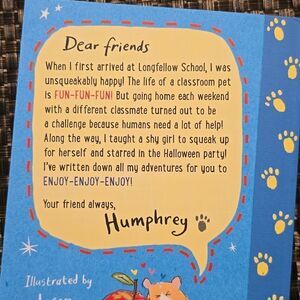 Dear friends
When I first arrived at Longfellow School, I was
unsqueakably happy! The life of a classroom pet
is FUN-FUN-FUN! But going home each weekend
with a different classmate turned out to be
a challenge because humans need a lot of help!
Along the way, I taught a shy girl to squeak up
for herself and starred in the Halloween party!
I've written down all my adventures for you to
ENJOY-ENJOY-ENJOY!
Your friend always,
Humphrey
Illustrated by